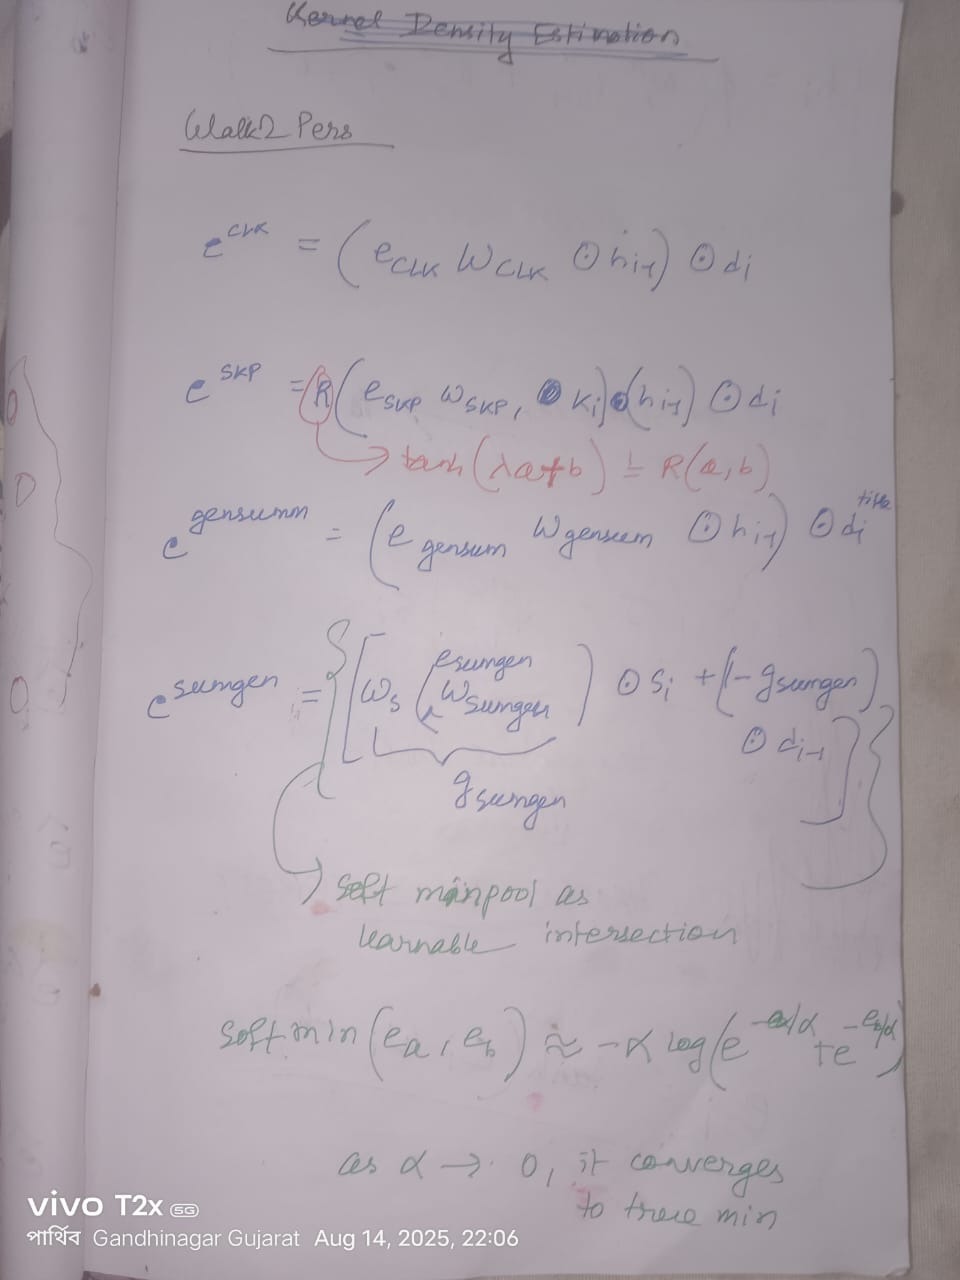 Kernel Density Estimation
Walk2Pers
e^CLK = (e_CLK W_CLK ⊙ h_i-1) ⊙ d_i
e^SKP = R(e_SKP W_SKP, K_i)(h_i-1) ⊙ d_i
→ tanh(λa+b) = R(a,b)
e^gensumm = (e_gensum W_gensum ⊙ h_i-1) ⊙ d_i^title
e^sumgen = {[W_s (e_sumgen W_sumgen) ⊙ s_i + (1 - g_sumgen)
⊙ d_i-1]}
g_sumgen
→ soft minpool as
learnable intersection
softmin(e_a, e_b) ≈ -α log(e^-ea/α + e^-eb/α)
as α → 0, it converges
to true min
vivo T2x 5G
পার্থিব Gandhinagar Gujarat Aug 14, 2025, 22:06